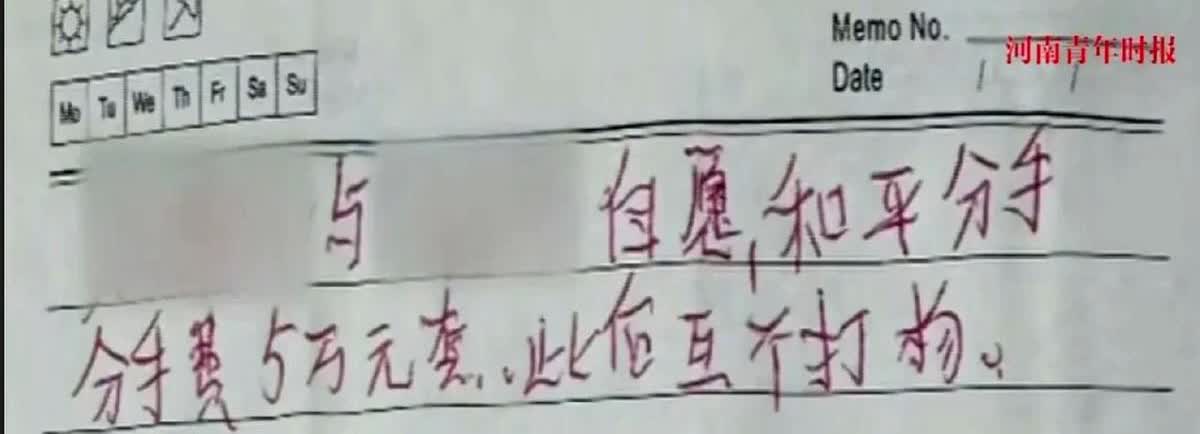 Memo No.
河南青年时报
Date / /
Mo Tu We Th Fr Sa Su
与 自愿,和平分手
分手费5万元套.此后互不打扰.